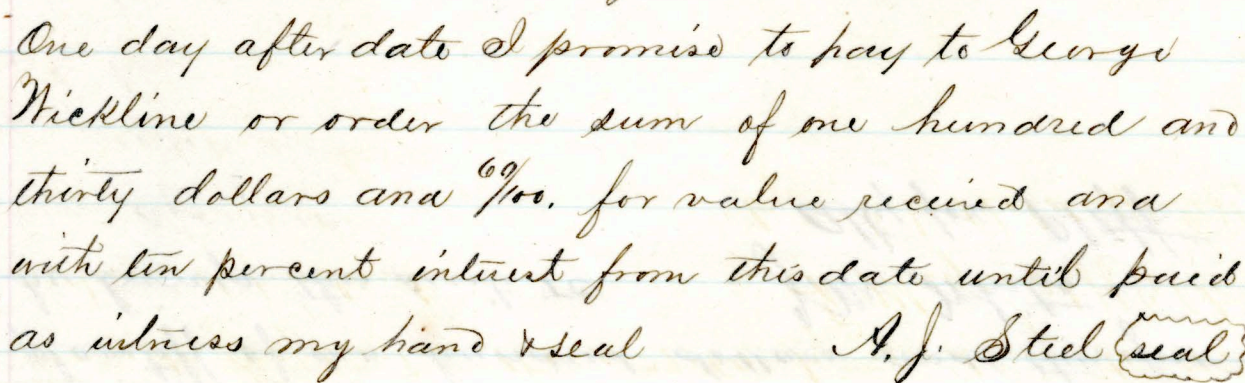 One day after date I promise to pay to George
Wickline or order the sum of one hundred and
thirty dollars and 60/100. for value recieved and
with ten percent interest from this date until paid
as witness my hand & seal A. J. Steel seal